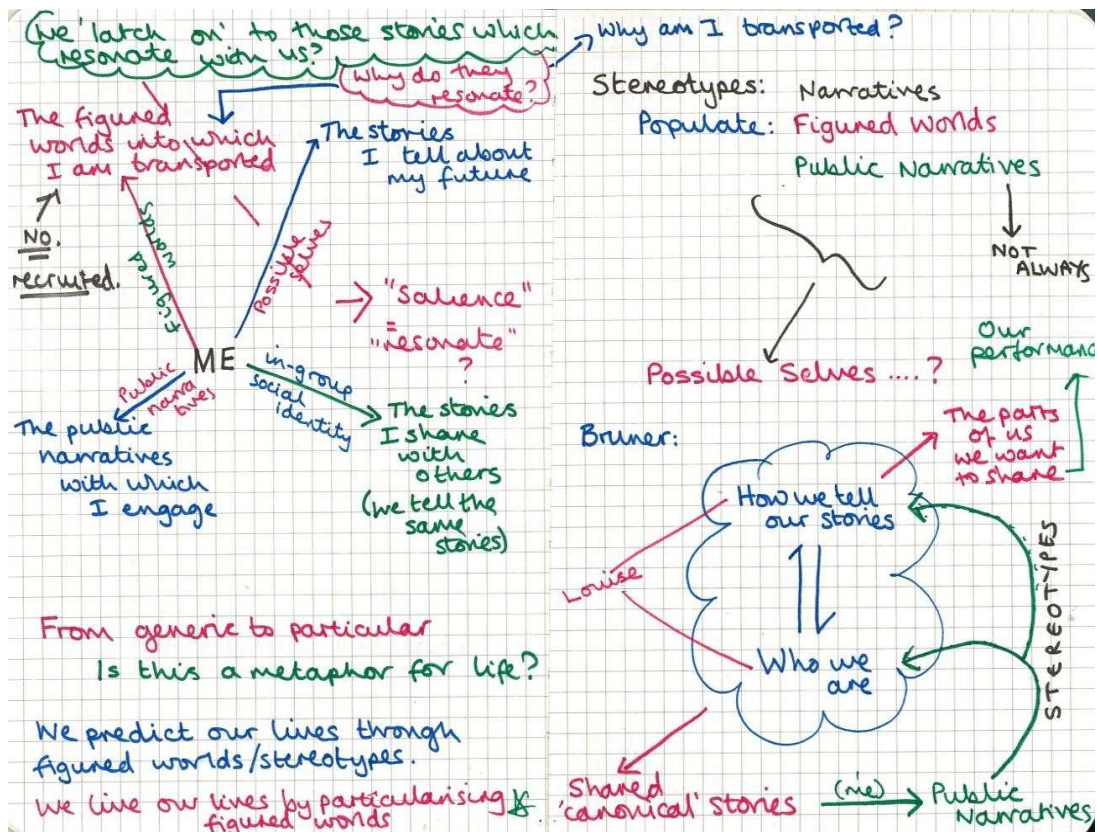 (We 'latch on' to those stories which
resonate with us?
Why do they
resonate?
The figured
worlds into which
I am transported
NO.
recruited.
The stories
I tell about
my future
Figured
worlds
Possible
selves
"Salience"
=
"resonate"
?
ME
Public
narra
tives
in-group
social
identity
The public
narratives
with which
I engage
The stories
I share
with
others
(we tell the
same
stories)
From generic to particular
Is this a metaphor for life?
We predict our lives through
figured worlds/stereotypes.
We live our lives by particularising
figured worlds
Why am I transported?
Stereotypes: Narratives
Populate: Figured Worlds
Public Narratives
NOT
ALWAYS
Possible Selves ....?
Our
performanc
The parts
of us
we want
to share
Bruner:
How we tell
our stories
Louise
Who we
are
STEREOTYPES
Shared
'canonical' stories
(me)
Public
Narratives